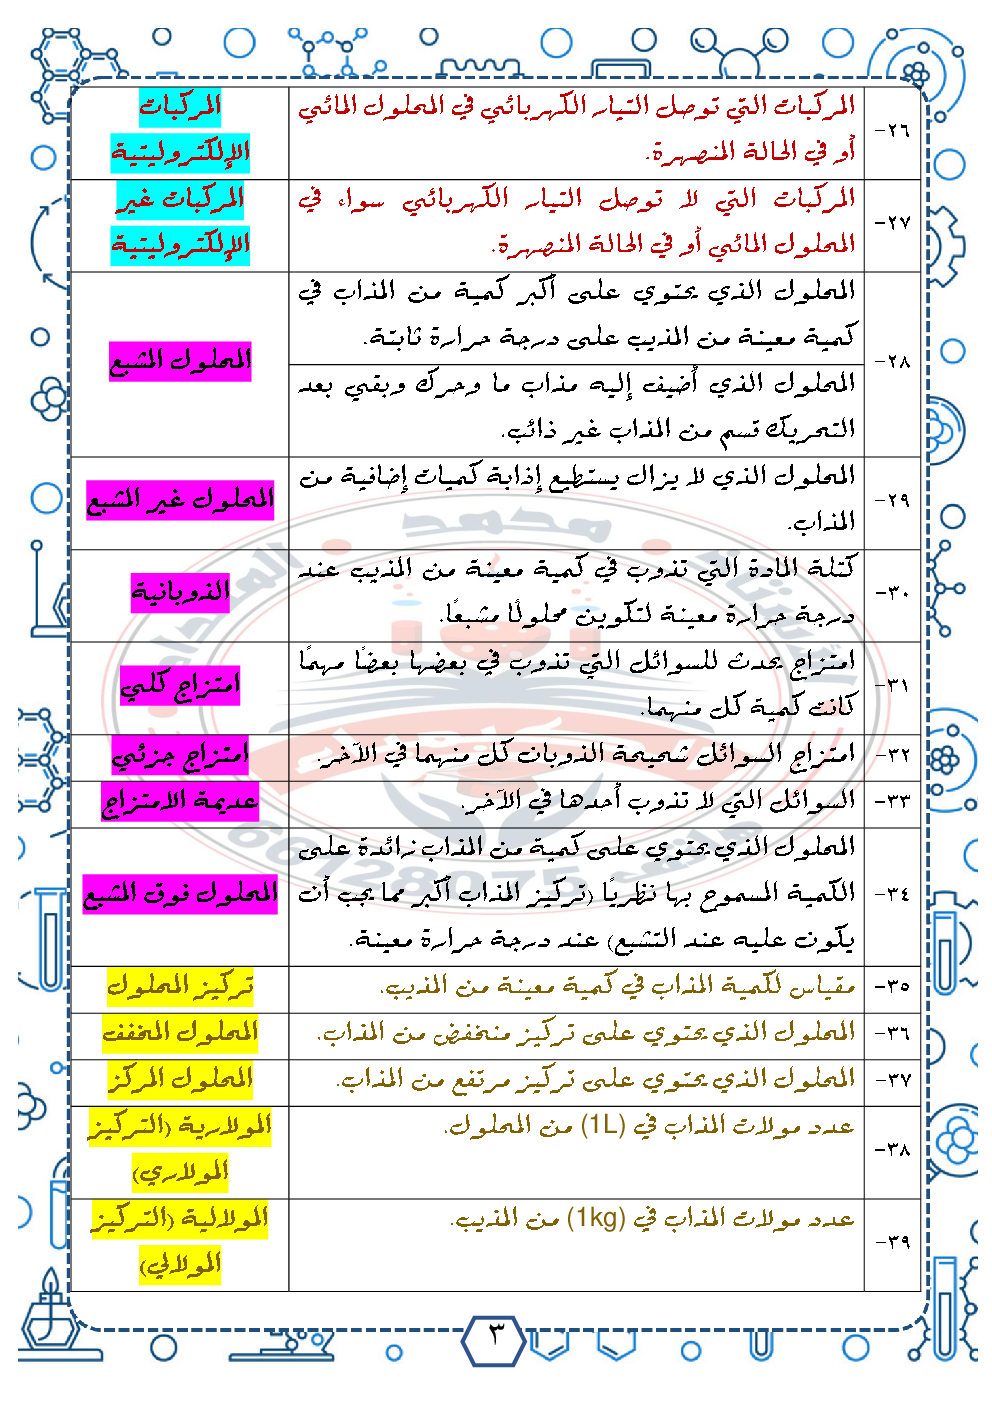 ٢٦-
المركبات التي توصل التيار الكهربائي في المحلول المائي
أو في الحالة المنصهرة.
المركبات
الإلكتروليتية
٢٧-
المركبات التي لا توصل التيار الكهربائي سواء في
المحلول المائي أو في الحالة المنصهرة.
المركبات غير
الإلكتروليتية
٢٨-
المحلول الذي يحتوي على أكبر كمية من المذاب في
كمية معينة من المذيب على درجة حرارة ثابتة.
المحلول الذي أضيف إليه مذاب ما وحرك وبقي بعد
التحريك قسم من المذاب غير ذائب.
المحلول المشبع
٢٩-
المحلول الذي لا يزال يستطيع إذابة كميات إضافية من
المذاب.
المحلول غير المشبع
٣٠-
كتلة المادة التي تذوب في كمية معينة من المذيب عند
درجة حرارة معينة لتكوين محلولًا مشبعًا.
الذوبانية
٣١-
امتزاج يحدث للسوائل التي تذوب في بعضها بعضًا مهمًا
كانت كمية كل منهما.
امتزاج كلي
٣٢-
امتزاج السوائل شحيحة الذوبان كل منهما في الآخر.
امتزاج جزئي
٣٣-
السوائل التي لا تذوب أحدها في الآخر.
عديمة الامتزاج
٣٤-
المحلول الذي يحتوي على كمية من المذاب زائدة على
الكمية المسموح بها نظريًا (تركيز المذاب أكبر مما يجب أن
يكون عليه عند التشبع) عند درجة حرارة معينة.
المحلول فوق المشبع
٣٥-
مقياس لكمية المذاب في كمية معينة من المذيب.
تركيز المحلول
٣٦-
المحلول الذي يحتوي على تركيز منخفض من المذاب.
المحلول المخفف
٣٧-
المحلول الذي يحتوي على تركيز مرتفع من المذاب.
المحلول المركز
٣٨-
عدد مولات المذاب في (1L) من المحلول.
المولارية (التركيز
المولاري)
٣٩-
عدد مولات المذاب في (1kg) من المذيب.
المولالية (التركيز
المولالي)
٣